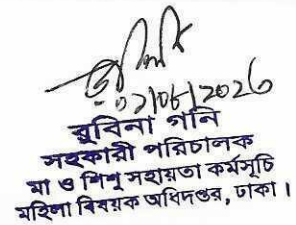 রুবিনা গনি
সহকারী পরিচালক
মা ও শিশু সহায়তা কর্মসূচি
মহিলা বিষয়ক অধিদপ্তর, ঢাকা।